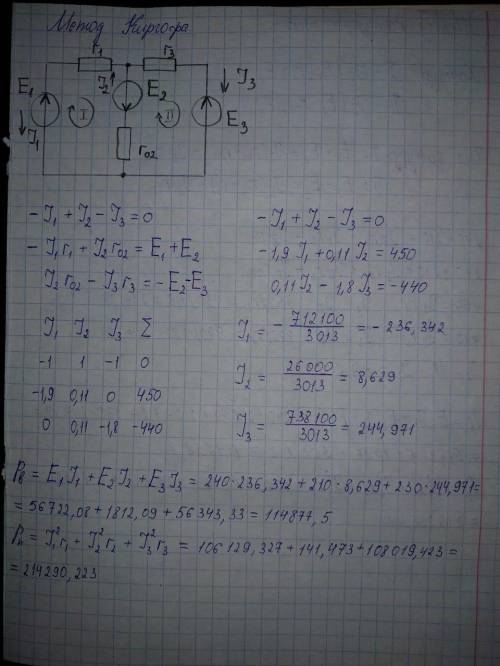 Метод Киргофа
r₁ r₃
E₁ I₁ I I₂ E₂ r₀₂ II I₃ E₃
-I₁ + I₂ - I₃ = 0
-I₁r₁ + I₂r₀₂ = E₁ + E₂
I₂r₀₂ - I₃r₃ = -E₂-E₃
-I₁ + I₂ - I₃ = 0
-1,9 I₁ + 0,11 I₂ = 450
0,11 I₂ - 1,8 I₃ = -440
I₁ I₂ I₃ Σ
-1 1 -1 0
-1,9 0,11 0 450
0 0,11 -1,8 -440
I₁ = - 712100/3013 = - 236,342
I₂ = 26000/3013 = 8,629
I₃ = 738100/3013 = 244,971
Pв = E₁I₁ + E₂I₂ + E₃I₃ = 240·236,342 + 210·8,629 + 230·244,971 =
= 56722,08 + 1812,09 + 56343,33 = 114877,5
Pп = I₁²r₁ + I₂²r₂ + I₃²r₃ = 106129,327 + 141,473 + 108019,423 =
= 214290,223